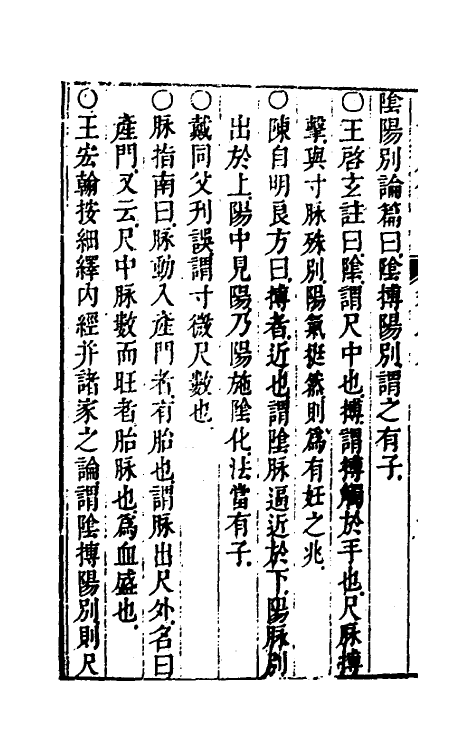 陰陽別論篇曰陰搏陽別謂之有子
○王啓玄註曰陰謂尺中也搏謂搏觸於手也尺脉搏
擊與寸脉殊別陽氣挺然則爲有妊之兆
○陳自明良方曰搏者近也謂陰脉逼近於下陽脉別
出於上陽中見陽乃陽施陰化法當有子
○戴同父刋誤謂寸微尺數也
○脉指南曰脉動入產門者有胎也謂脉出尺外名曰
產門又云尺中脉數而旺者胎脉也爲血盛也
○王宏翰按細繹内經并諸家之論謂陰搏陽別則尺